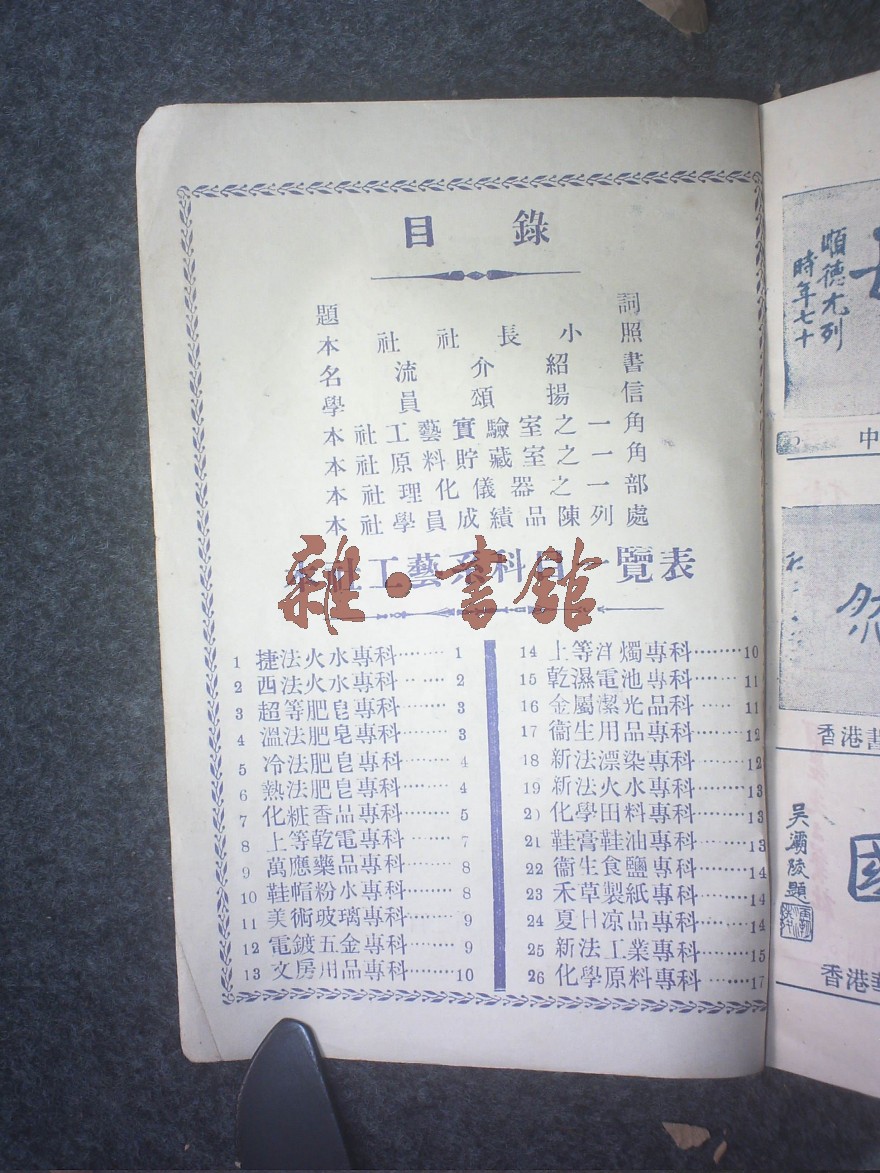 目錄
題詞
本社社長小照
名流介紹書
學員頌揚信
本社工藝實驗室之一角
本社原料貯藏室之一角
本社理化儀器之一部
本社學員成績品陳列處
本社工藝系科目一覽表
雜·書館
1 捷法火水專科········ 1
2 西法火水專科·· ···· 2
3 超等肥皂專科········ 3
4 溫法肥皂專科········ 3
5 冷法肥皂專科········ 4
6 熱法肥皂專科········ 4
7 化粧香品專科········ 5
8 上等乾電專科········ 7
9 萬應藥品專科········ 8
10 鞋帽粉水專科········ 8
11 美術玻璃專科········ 9
12 電鍍五金專科········ 9
13 文房用品專科········10
14 上等洋燭專科········10
15 乾濕電池專科········11
16 金屬潔光品科····· 11
17 衞生用品專科········12
18 新法漂染專科········12
19 新法火水專科········13
20 化學田料專科········13
21 鞋膏鞋油專科········13
22 衞生食鹽專科········14
23 禾草製紙專科········14
24 夏日凉品專科········14
25 新法工業專科········15
26 化學原料專科········17
順德尤列
時年七十
中
香港書
吳灞陵題
國
香港華